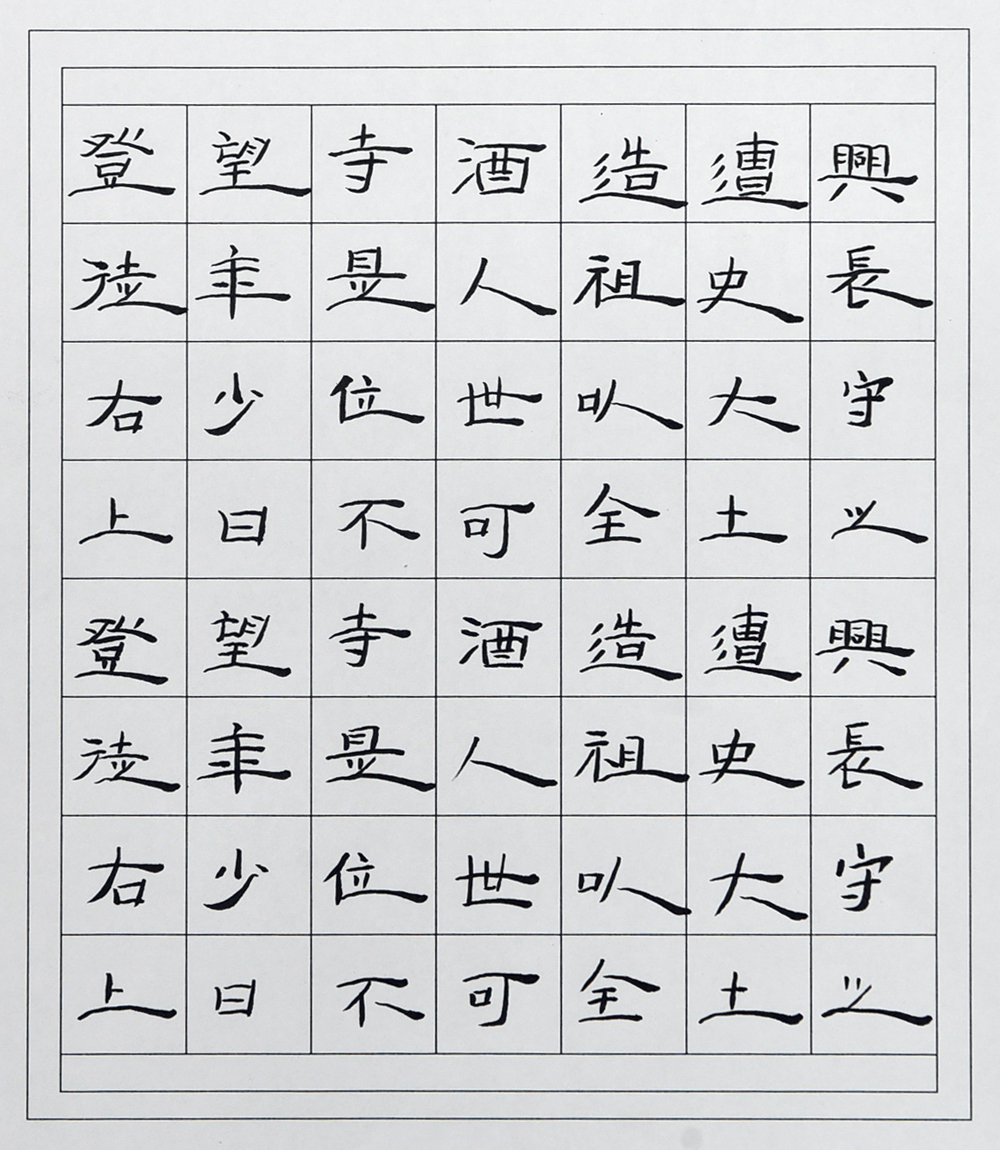 興長守之興長守之
遭史大土遭史大土
造祖以全造祖以全
酒人世可酒人世可
寺是位不寺是位不
望年少日望年少日
登徒右上登徒右上